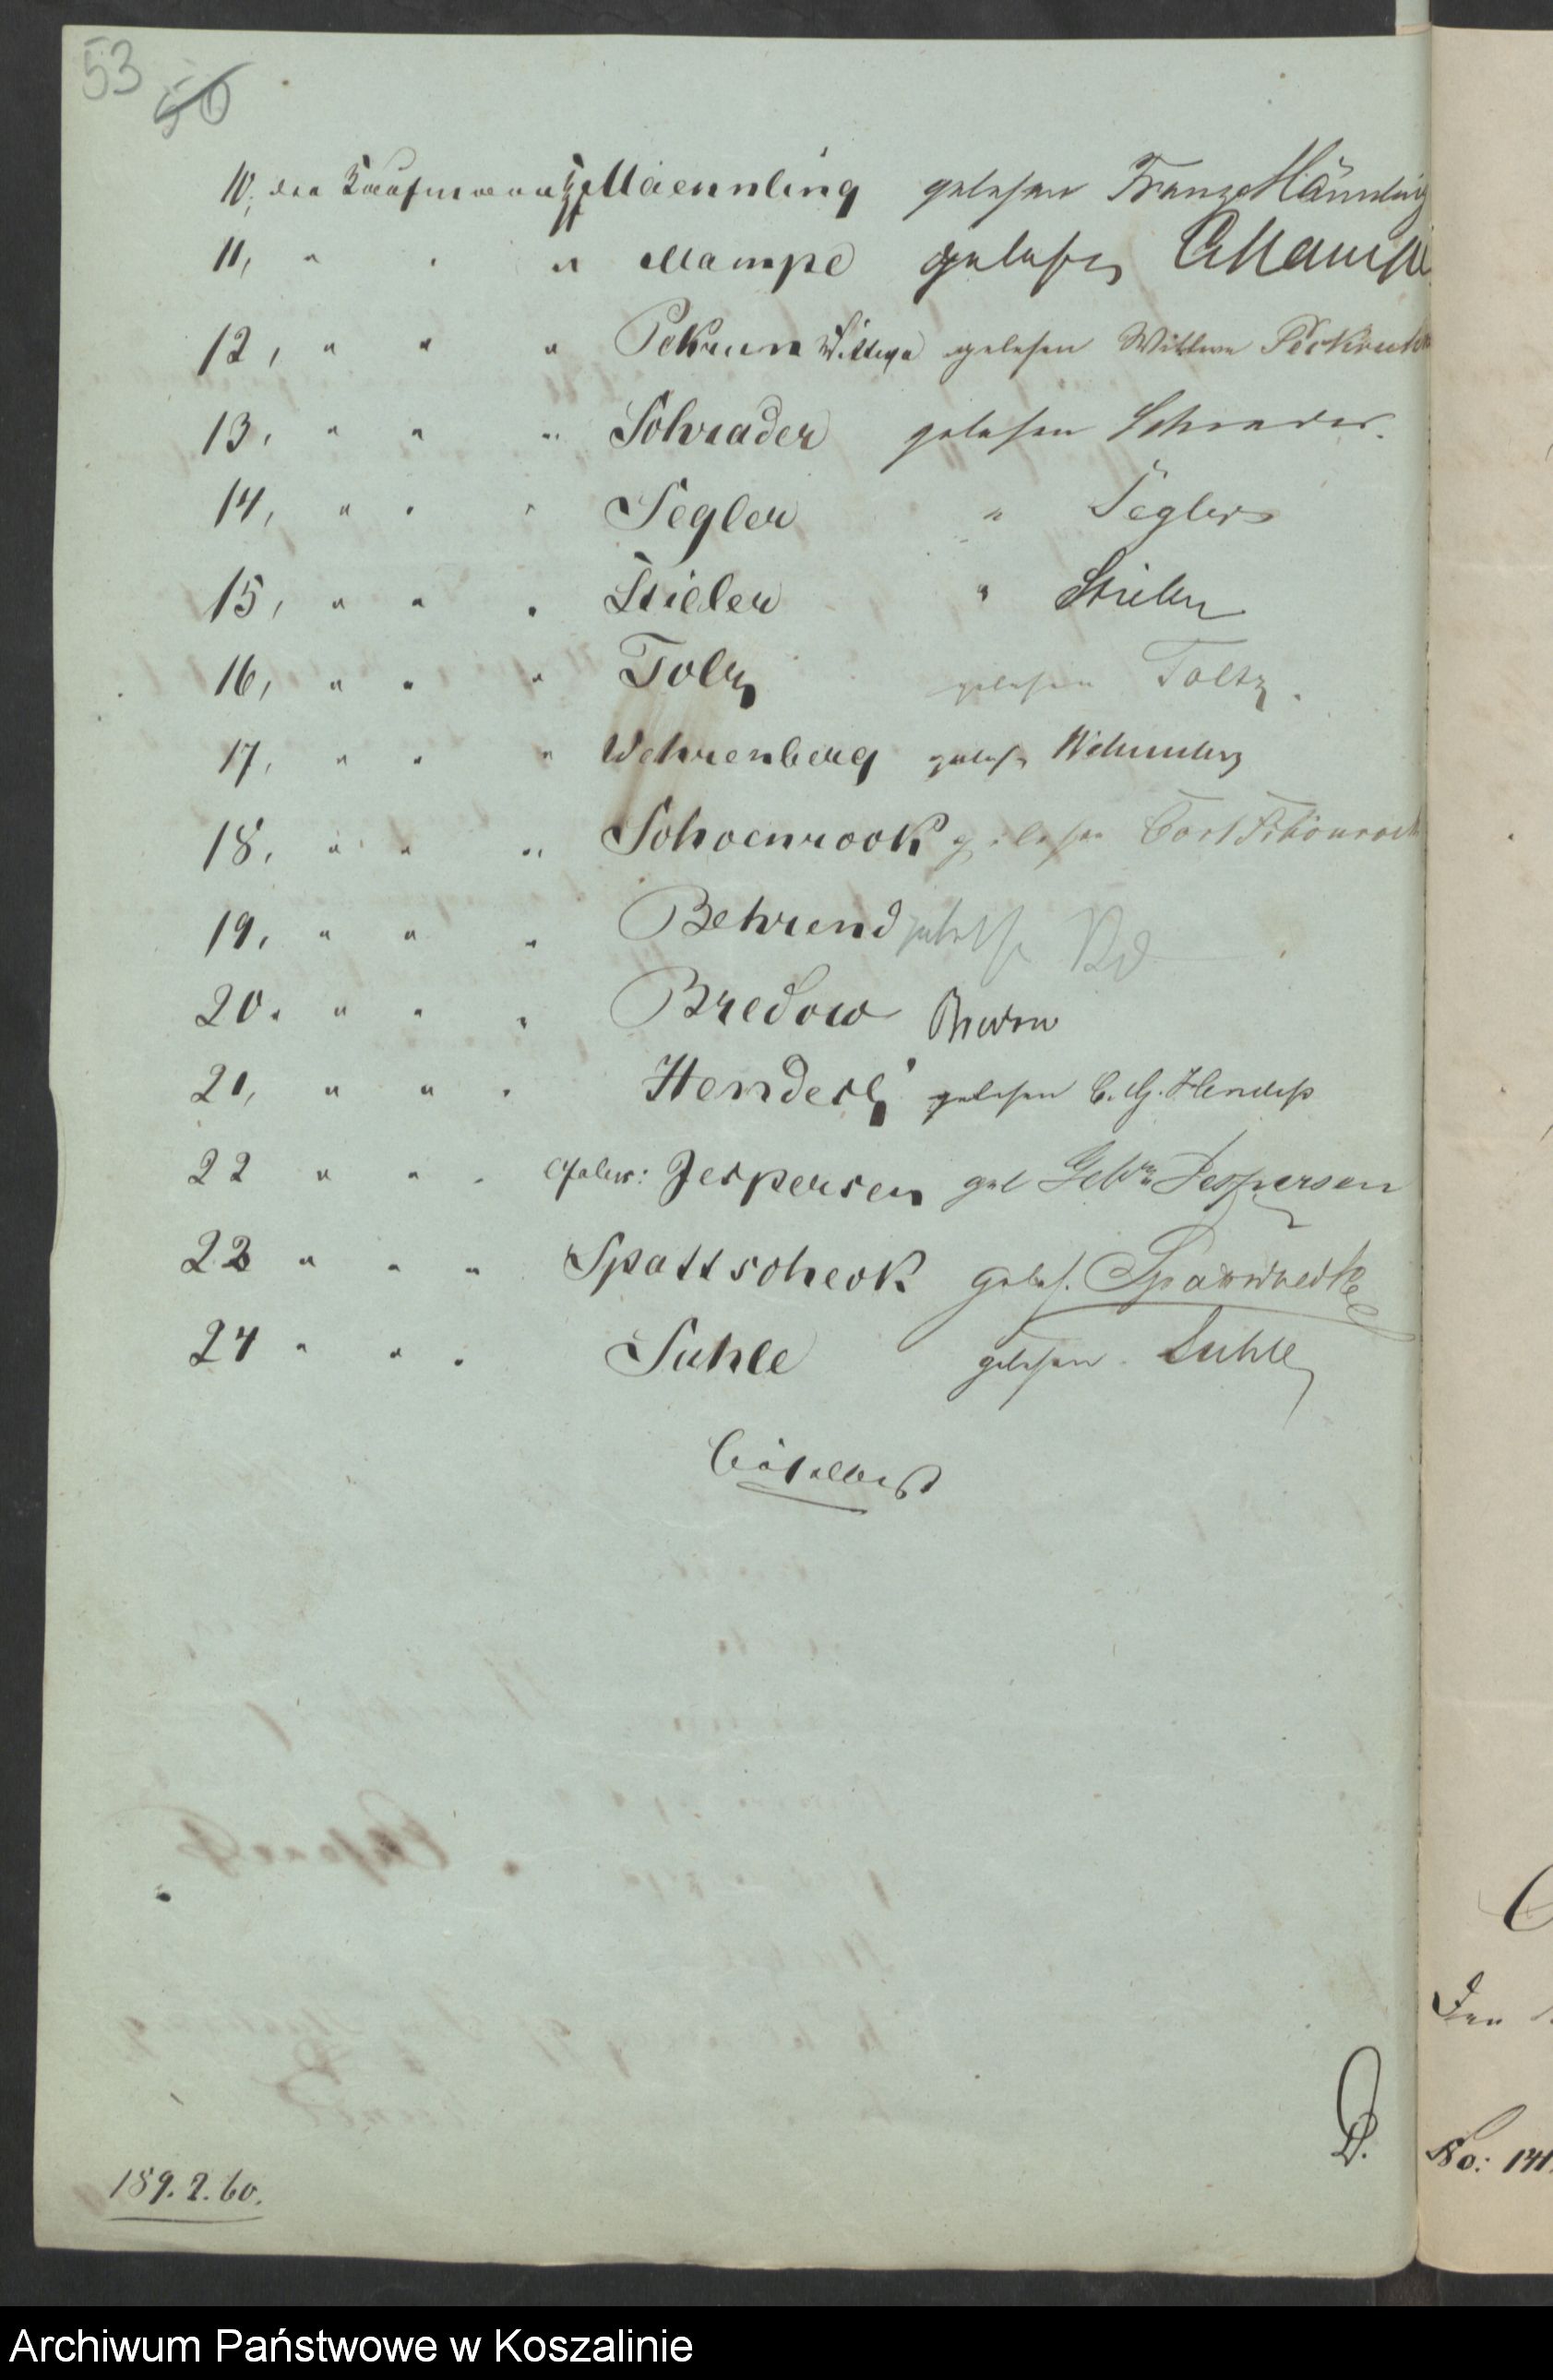 53
50
10, den Kaufmann Maennling gelesen Franz Männling
11, " " " Mampe gelesen CMampe
12, " " " Pekrun Wittwe gelesen Wittwe Peckruhn
13, " " " Schrader gelesen Schrader.
14, " " " Segler " Segler
15, " " " Stieler " Stieler
16, " " " Toltz gelesen Toltz.
17, " " " Wehrenberg geles Wehrenberg
18, " " " Schoenrock gelesen Carl Schönrock
19, " " " Behrend gelesen Bd
20. " " " Bredow Bredow
21, " " " Hendess gelesen C. G. Hendeß
22 " " " Gebr: Jespersen gel Gebr Jespersen
23 " " " Spattscheck geles. Spattscheck
24 " " " Suhle gelesen. Suhle
189.2.60.
No: 141.
Archiwum Państwowe w Koszalinie